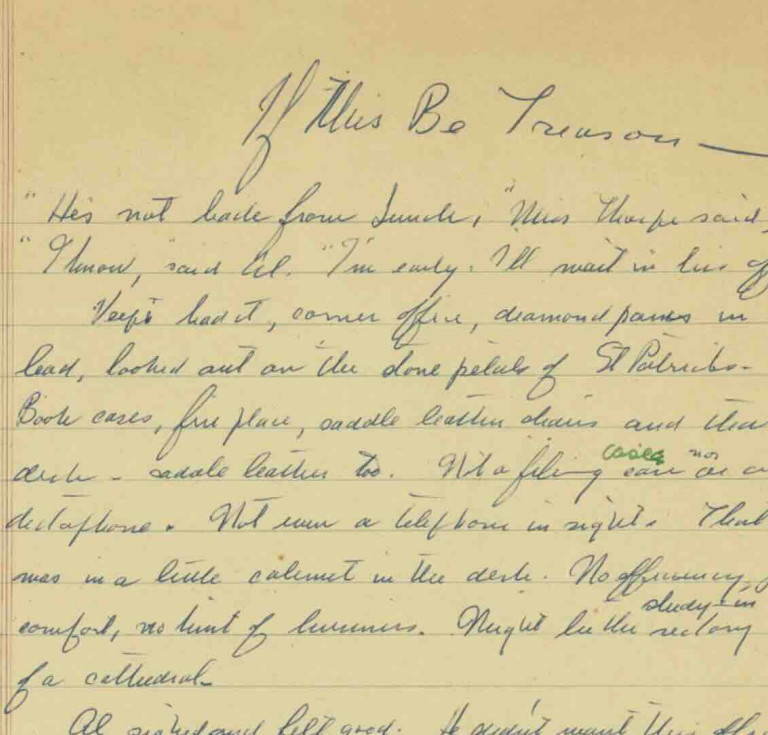 If This Be Treason —
"He's not back from lunch," Miss Thorpe said,
"I know," said Al. "I'm early. I'll wait in his of
Veep's had it, corner office, diamond panes in
lead, looked out on the stone petals of St Patricks-
Book cases, fire place, saddle leather chairs and
desk - saddle leather too. Not a filing case or a
cases nor
dictaphone. Not even a telephone in sight. That
was in a little cabinet in the desk. No efficiency,
comfort, no hint of business. Might be the rectory
study in
of a cathedral-
Al sighed and felt good. He didn't want this